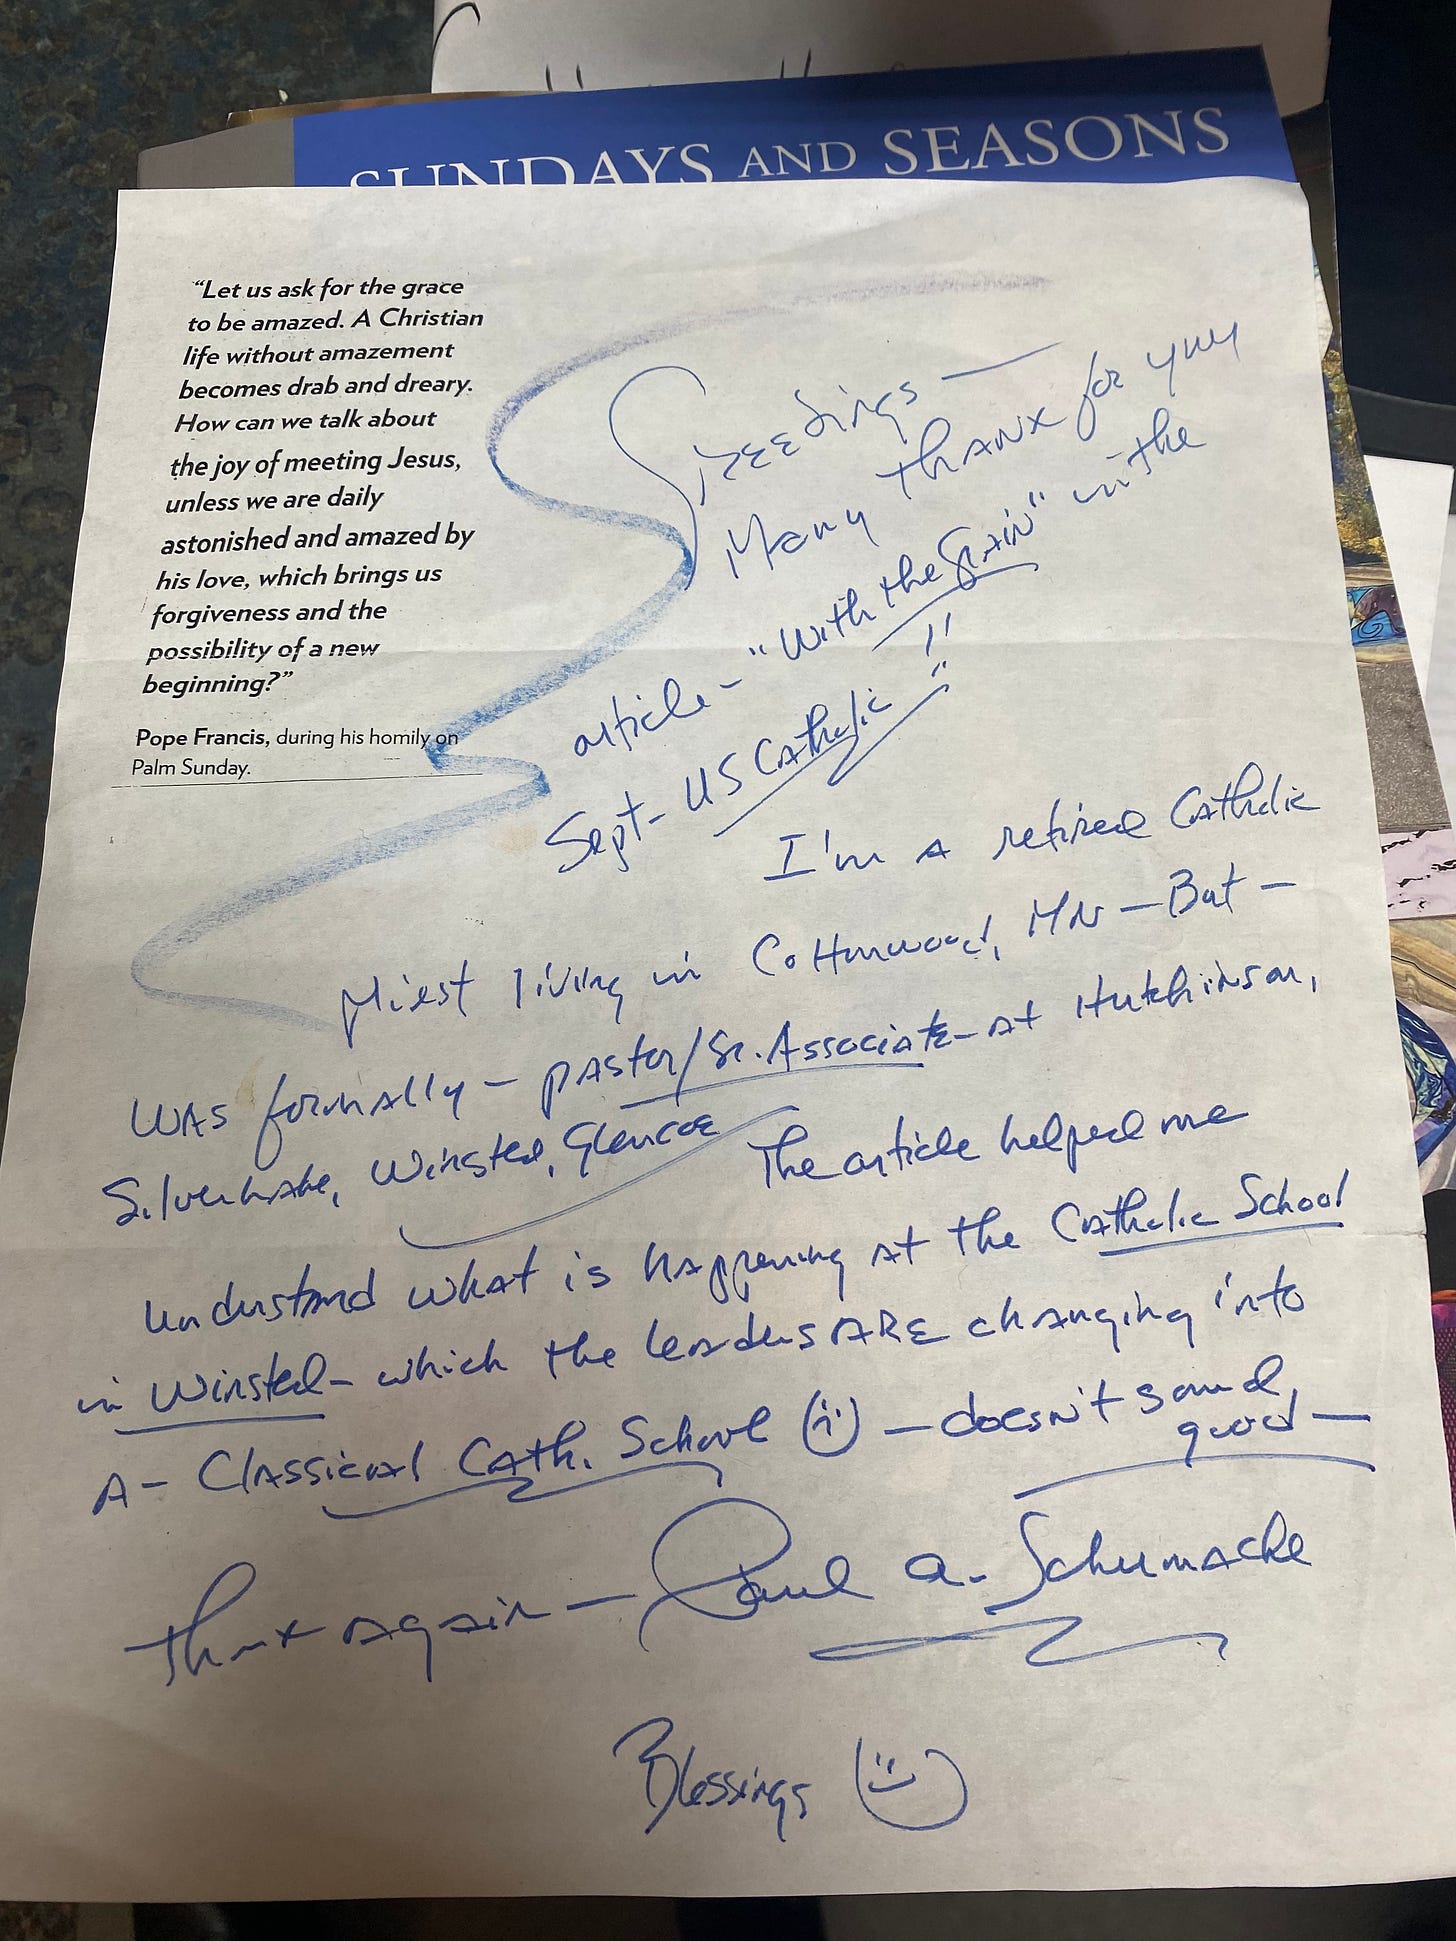 SUNDAYS AND SEASONS
“Let us ask for the grace
to be amazed. A Christian
life without amazement
becomes drab and dreary.
How can we talk about
the joy of meeting Jesus,
unless we are daily
astonished and amazed by
his love, which brings us
forgiveness and the
possibility of a new
beginning?”
Pope Francis, during his homily on
Palm Sunday.
Greetings —
Many thanx for your
article - "With the Grain" in the
Sept - US Catholic !!
I'm a retired Catholic
priest living in Cottonwood, MN — But —
was formally — pastor/Sr. Associate - at Hutchinson,
Silver Lake, Winsted, Glencoe
The article helped me
understand what is happening at the Catholic School
in Winsted - which the leaders ARE changing into
A - Classical Cath. School — doesn't sound
good —
Thanx again — Paul A. Schumacher
Blessings